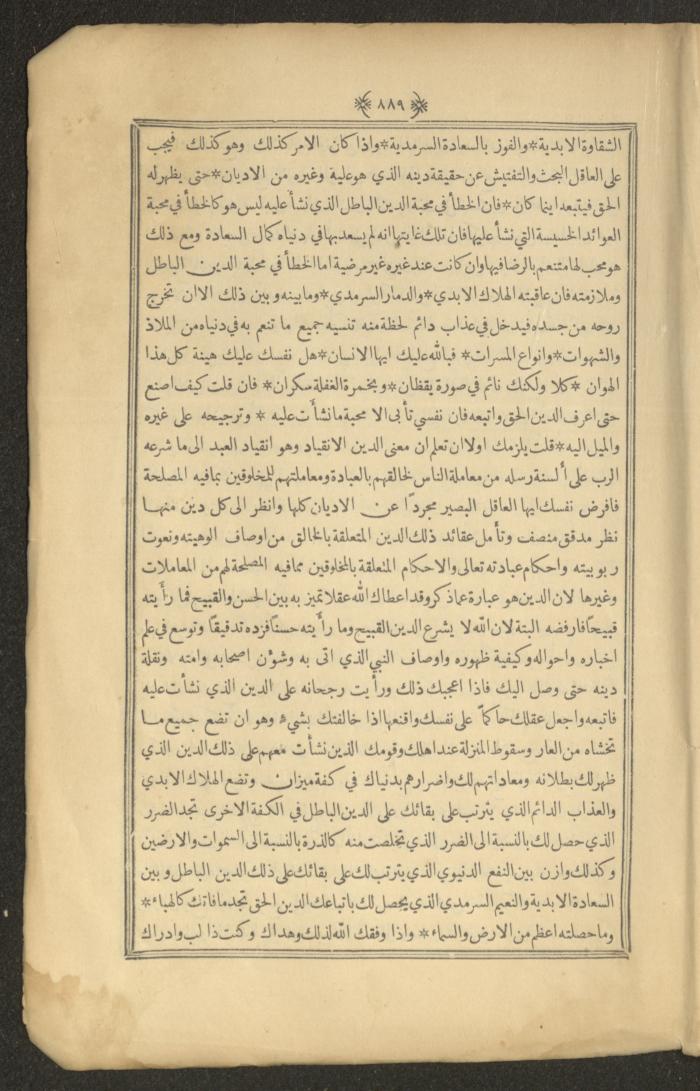 ﴿٨٨٩﴾
الشقاوة الابدية*والفوز بالسعادة السرمدية*واذا كان الامر كذلك وهو كذلك فيجب
على العاقل البحث والتفتيش عن حقيقة دينه الذي هو علية وغيره من الاديان*حتى يظهر له
الحق فيتبعه اينما كان*فان الخطأ في محبة الدين الباطل الذي نشأ عليه ليس هو كالخطأ في محبة
العوائد الخسيسة التي نشأ عليها فان تلك غايتها انه لم يسعد بها في دنياه كمال السعادة ومع ذلك
هو محب لها متنعم بالرضا فيها وان كانت عند غيره غير مرضية اما الخطأ في محبة الدين الباطل
وملازمته فان عاقبته الهلاك الابدي*والدمار السرمدي*وما بينه وبين ذلك الا ان تخرج
روحه من جسده فيدخل في عذاب دائم لحظة منه تنسيه جميع ما تنعم به في دنياه من الملاذ
والشهوات*وانواع المسرات* فبالله عليك ايها الانسان*هل نفسك عليك هينة كل هذا
الهوان *كلا ولكنك نائم في صورة يقظان*وبخمرة الغفلة سكران* فان قلت كيف اصنع
حتى اعرف الدين الحق واتبعه فان نفسي تأبى الا محبة ما نشأت عليه * وترجيحه على غيره
والميل اليه*قلت يلزمك اولا ان تعلم ان معنى الدين الانقياد وهو انقياد العبد الى ما شرعه
الرب على ألسنة رسله من معاملة الناس لخالقهم بالعبادة ومعاملتهم للمخلوقين بما فيه المصلحة
فافرض نفسك ايها العاقل البصير مجردًا عن الاديان كلها وانظر الى كل دين منها
نظر مدقق منصف وتأمل عقائد ذلك الدين المتعلقة بالخالق من اوصاف الوهيته ونعوت
ربوبيته واحكام عبادته تعالى والاحكام المتعلقة بالمخلوقين مما فيه المصلحة لهم من المعاملات
وغيرها لان الدين هو عبارة عما ذكر وقد اعطاك الله عقلا تميز به بين الحسن والقبيح فما رأيته
قبيحًا فارفضه البتة لان الله لا يشرع الدين القبيح وما رأيته حسنًا فزده تدقيقًا وتوسع في علم
اخباره واحواله وكيفية ظهوره واوصاف النبي الذي اتى به وشوٴن اصحابه وامته ونقلة
دينه حتى وصل اليك فاذا اعجبك ذلك ورأيت رجحانه على الدين الذي نشأت عليه
فاتبعه واجعل عقلك حاكمًا على نفسك واقنعها اذا خالفتك بشيء وهو ان تضع جميع ما
تخشاه من العار وسقوط المنزلة عند اهلك وقومك الذين نشأت معهم على ذلك الدين الذي
ظهر لك بطلانه ومعاداتهم لك واضرارهم بدنياك في كفة ميزان وتضع الهلاك الابدي
والعذاب الدائم الذي يترتب على بقائك على الدين الباطل في الكفة الاخرى تجد الضرر
الذي حصل لك بالنسبة الى الضرر الذي تخلصت منه كالذرة بالنسبة الى السموات والارضين
وكذلك وازن بين النفع الدنيوي الذي يترتب لك على بقائك على ذلك الدين الباطل وبين
السعادة الابدية والنعيم السرمدي الذي يحصل لك باتباعك الدين الحق تجد ما فاتك كالهباء*
وما حصلته اعظم من الارض والسماء* واذا وفقك الله لذلك وهداك وكنت ذا لب وادراك